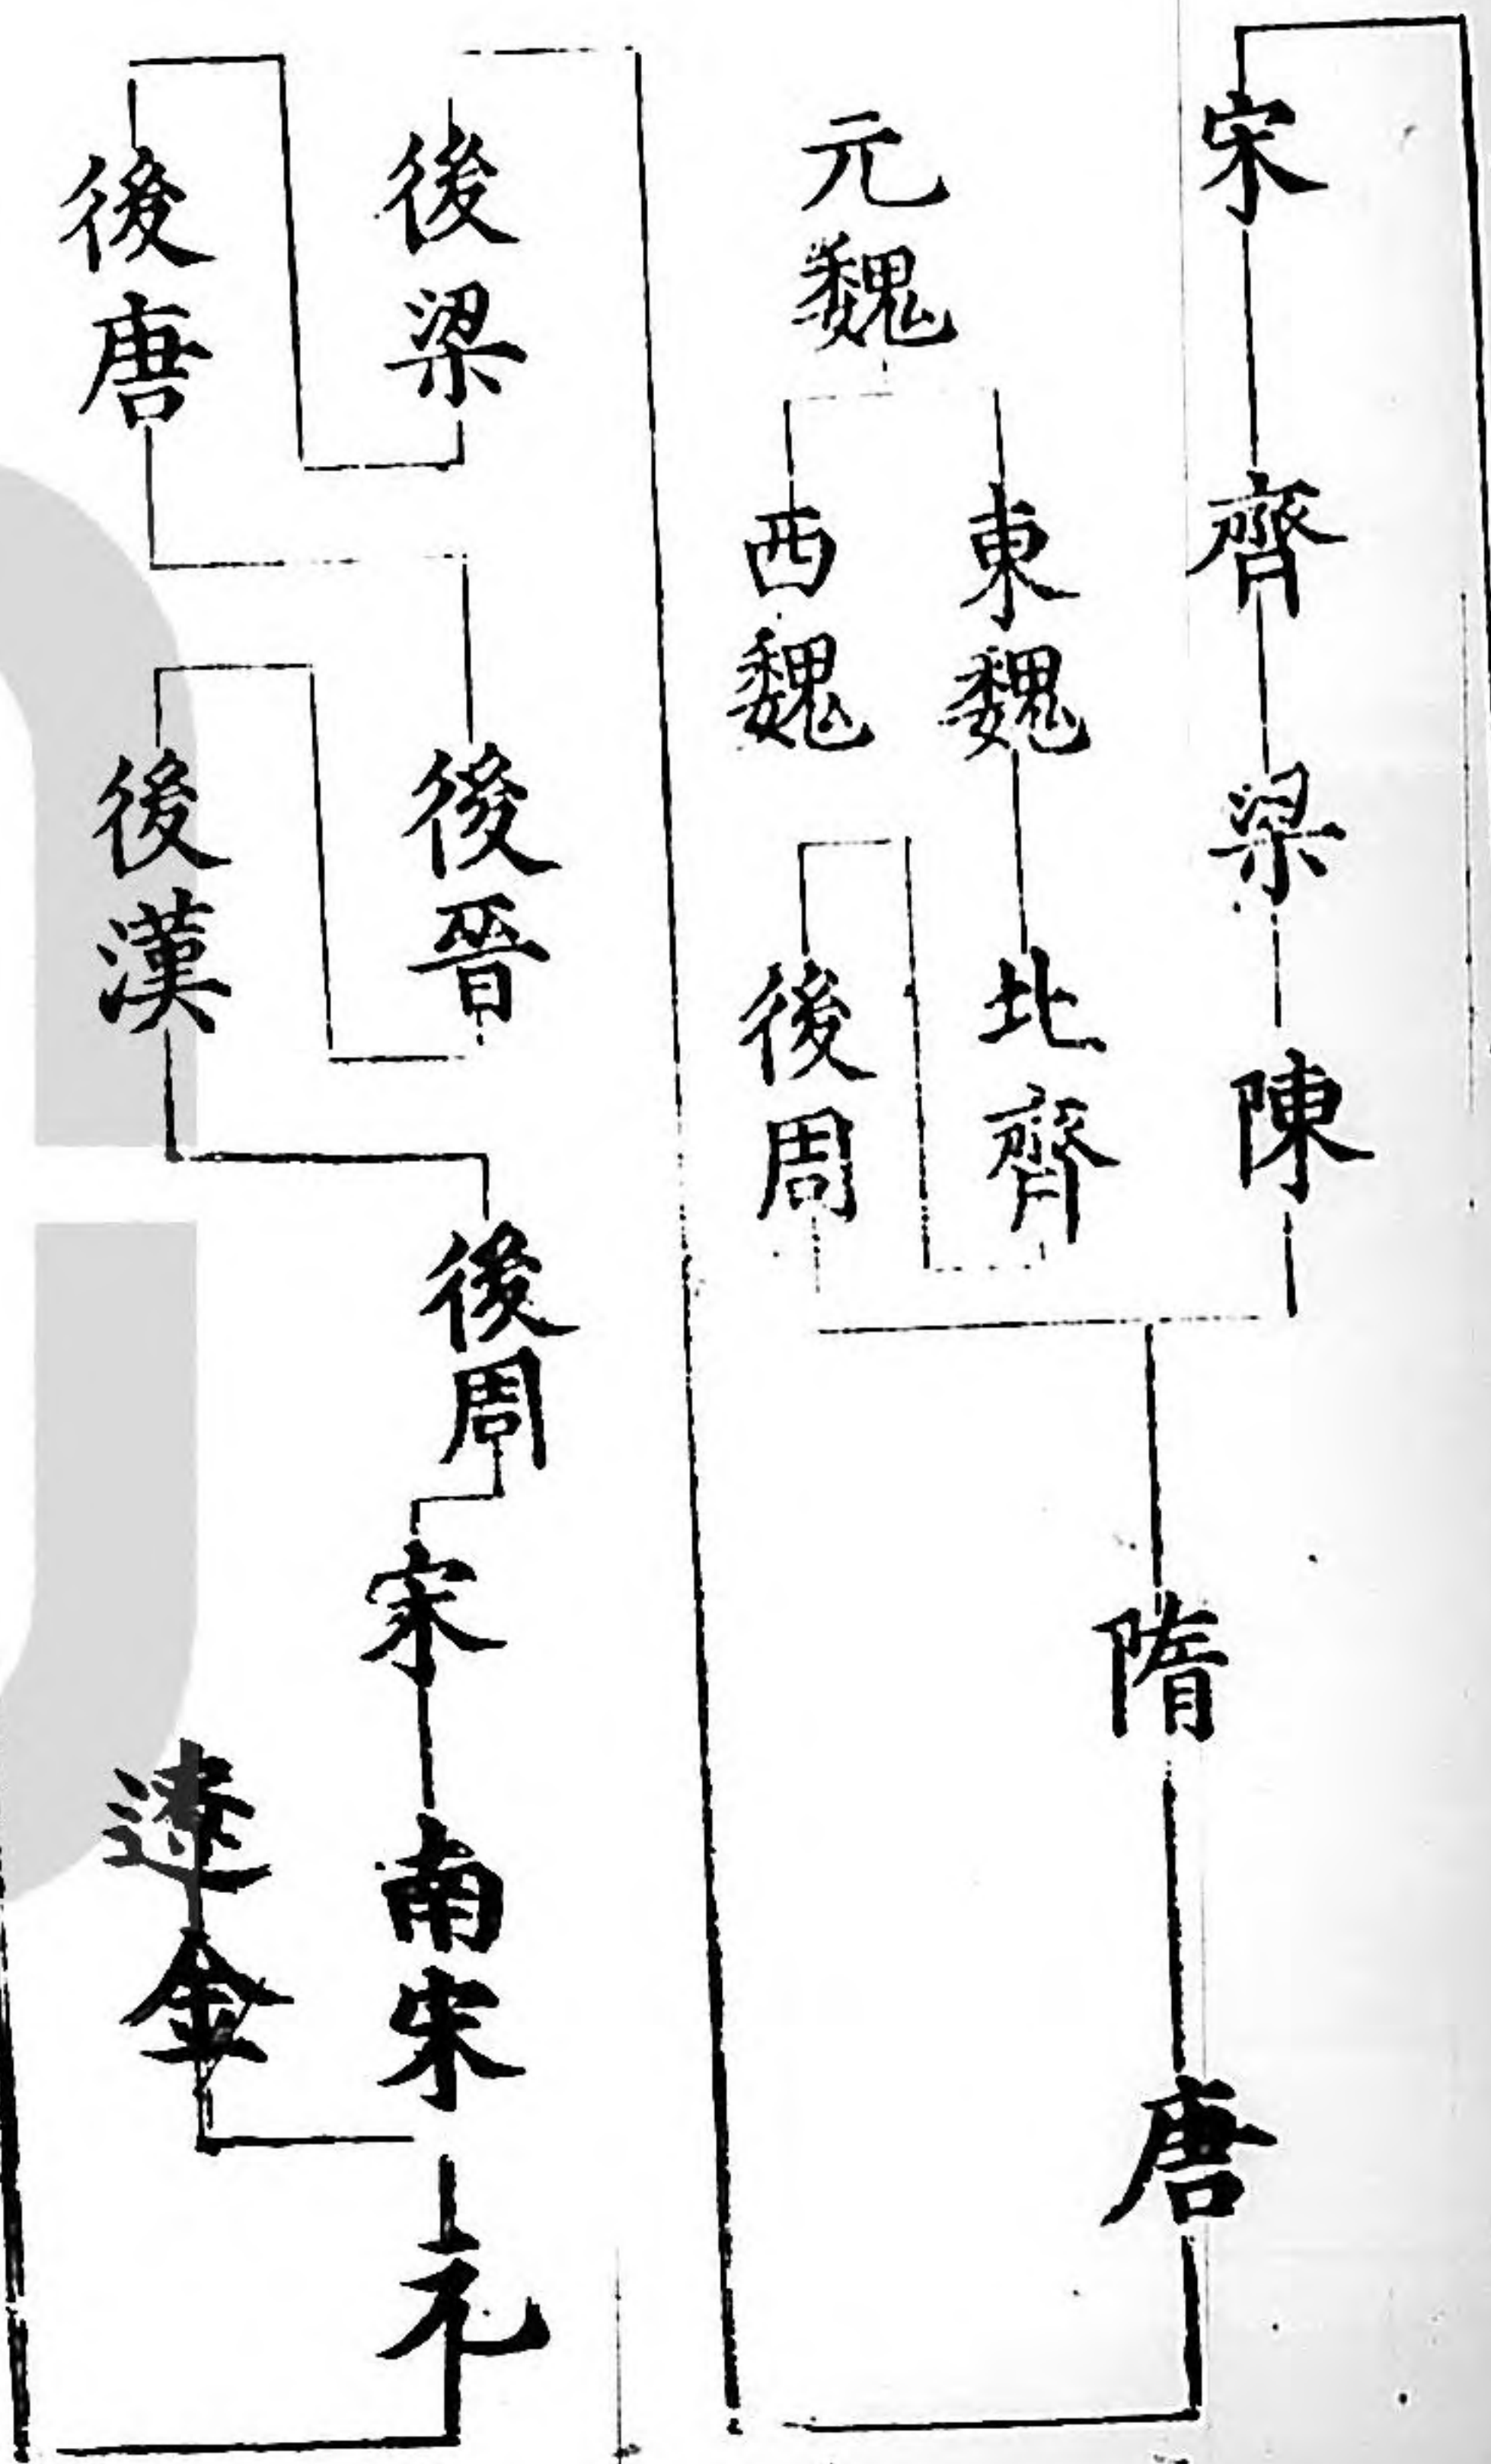 宋
齊
梁
陳
元魏
東魏
西魏
北齊
後周
隋
唐
後梁
後唐
後晉
後漢
後周
宋
南宋
遼
金
元